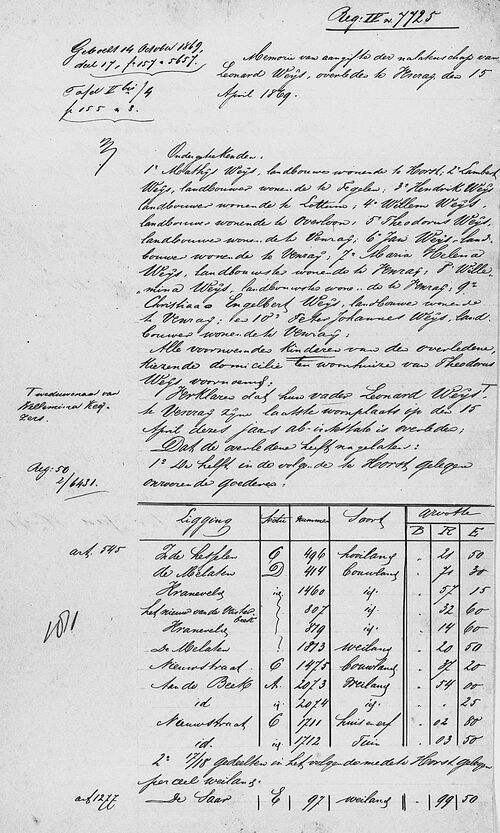 Reg: IV n. 7725
Geboekt 14 October 1869,
deel 17, fo 157 n 5657.
Tafel II bis 1/4
fo 155 n 3.
Memorie van aangifte der nalatenschap van
Leonard Weijs, overleden te Venray den 15
April 1869.
Ondergeteekenden.
1o Mathijs Weijs, landbouwer wonende te Horst; 2o Lambert
Weijs, landbouwer wonende te Tegelen; 3o Hendrik Weijs
landbouwer wonende te Lottum; 4o Willem Weijs,
landbouwer wonende te Overloon; 5o Theodorus Weijs,
landbouwer wonende te Venray; 6o Jan Weijs, land-
bouwer wonende te Venray; 7o Maria Helena
Weijs, landbouwster wonende te Venray; 8o Wille
mina Weijs, landbouwster wonende te Venray, 9o
Christiaan Engelbert Weijs, landbouwer wonende
te Venray; en 10o Peter Johannes Weijs, land
bouwer wonende te Venray;
Alle voornoemde kinderen van den overledene,
kiezende domicilie ten woonhuize van Theodorus
Weijs voornoemd;
Verklaren dat hun vader Leonard Weijs
te Venray zijn laatste woonplaats op den 15
April dezes jaars ab intestato is overleden;
Weduwenaar van
Wilhelmina
Dat de overledene heeft nagelaten:
Reg: 50
2/6431.
1o De helft in de volgende te Horst gelegen
onroerende goederen:
Ligging Sectie nummer Soort Grootte
B R E
art. 545 C 496 hooiland . 20 50
de Melaten D 414 bouwland . 70 30
Kranevelt id 1460 id. . 57 15
807 id. . 32 60
Kranevelt 819 id. . 14 60
De Melaten 1813 weiland . 20 50
Nieuwstraat C 1475 bouwland . 87 20
Aan de Beek A. 2073 weiland . 54 00
id id 2074 id. . . 25
Nieuwstraat C 1711 huis en erf . 02 80
id. id. 1712 Tuin . 03 50
2o 17/18 gedeelten in het volgende mede te Horst gelegen
perceel weiland:
art 1277 De Saar E 97 weiland . 99 50